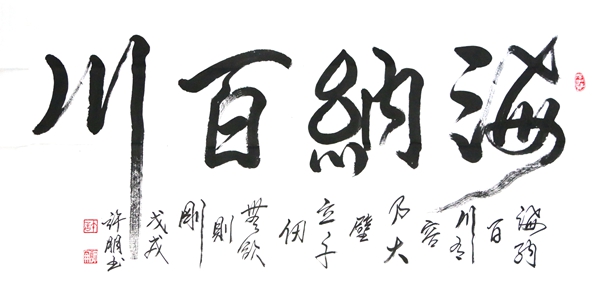 海納百川
海納
百
川有
容
乃大
壁
立千
仞
無欲
則
剛
戊戌
許明书